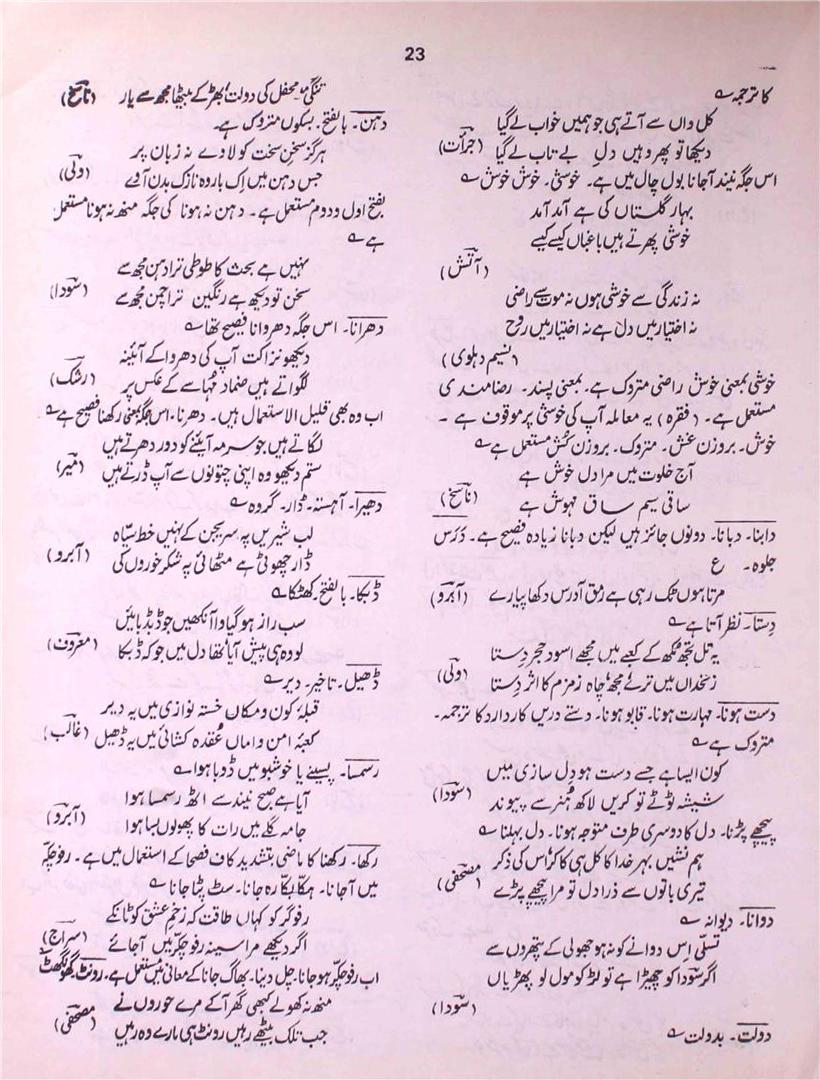 23
کا ترجمہ ؎
کل واں سے آتے ہی جو ہمیں خواب لے گیا
دیکھا تو پھر وہیں دل بے تاب لے گیا (جرأت)
اس جگہ نیند آجانا بول چال میں ہے۔ خوشی۔ خوش خوش ؎
بہار گلستاں کی ہے آمد آمد
خوشی پھرتے ہیں باغباں کیسے کیسے
(آتش)
نہ زندگی سے خوشی ہوں نہ موت سے راضی
نہ اختیار میں دل ہے نہ اختیار میں روح
(نسیم دہلوی)
خوشی بمعنی خوش راضی متروک ہے۔ بمعنی پسند۔ رضامندی
مستعمل ہے۔ (فقرہ) یہ معاملہ آپ کی خوشی پر موقوف ہے۔
خوش۔ بروزن غش۔ متروک۔ بروزن کُش مستعمل ہے ؎
آج خلوت میں مرا دل خوش ہے
ساقی سیم ساق مہوش ہے (ناسخ)
دابنا۔ دبانا۔ دونوں جائز ہیں لیکن دبانا زیادہ فصیح ہے۔ دَرَس
جلوہ۔ ع
مرتا ہوں ٹک رہی ہے رمق آدرس دکھا پیارے (آبرو)
دِستا۔ نظر آتا ہے ؎
یہ تل تجھ مکھ کے کعبے میں مجھے اسود حجر دِستا
زنخداں میں ترے مجھ چاہ زمزم کا اثر دِستا (ولی)
دست ہونا۔ مہارت ہونا۔ قابو ہونا۔ دستے دریں کار دارد کا ترجمہ۔
متروک ہے ؎
کون ایسا ہے جسے دست ہو دل سازی میں
شیشہ ٹوٹے تو کریں لاکھ ہُنر سے پیوند (سودا)
پیچھے پڑنا۔ دل کا دوسری طرف متوجہ ہونا۔ دل بہلنا ؎
ہم نشیں بہر خدا کا کل ہی کا کر اس کی ذکر
تیری باتوں سے ذرا دل تو مرا پیچھے پڑے (مصحفی)
دوانا۔ دیوانہ ؎
تسلّی اس دوانے کو نہ ہو جھولی کے پتھروں سے
اگر سودا کو چھیڑا ہے تو لڑکو مول لو پھڑیاں
(سودا)
دولت۔ بدولت ؎
تنگیٔ محفل کی دولت، بھڑ کے بیٹھا مجھ سے یار (ناسخ)
دہن۔ بالفتح۔ بسکوں متروک ہے۔
ہرگز سخن سخت کو لاوے نہ زبان پر
جس دہن میں اک بار وہ نازک بدن آوے (ولی)
بفتح اول و دوم مستعمل ہے۔ دہن نہ ہونا کی جگہ منھ نہ ہونا مستعمل
ہے ؎
نہیں ہے بحث کا طوطی ترا دہن مجھ سے
سخن تو دیکھ ہے رنگین ترا چمن مجھ سے (سودا)
دھرانا۔ اس جگہ دھروانا فصیح تھا ؎
دیکھو نزاکت آپ کی دھروا کے آئینہ
لگواتے ہیں ضماد مُہاسے کے عکس پر (رشک)
اب وہ بھی قلیل الاستعمال ہیں۔ دھرنا، اس جگہ بمعنی رکھنا فصیح ہے ؎
لگاتے ہیں جو سرمہ آئینے کو دور دھرتے ہیں
ستم دیکھو وہ اپنی چتونوں سے آپ ڈرتے ہیں (میر)
دھیرا۔ آہستہ۔ ڈار۔ گروہ ؎
لب شیریں پہ سریجن کے نہیں خط سیاہ
ڈار چھوٹی ہے مٹھائی پہ شکر خوروں کی (آبرو)
ڈبکا۔ بالفتح۔ کھٹکا ؎
سب راز ہو گیا وا آنکھیں جو ڈبڈبائیں
لو وہ ہی پیش آیا تھا دل میں جو کہ ڈبکا (معروف)
ڈھیل۔ تاخیر۔ دیر ؎
قبلۂ کون و مکاں خستہ نوازی میں یہ دیر
کعبۂ امن و اماں عُقدہ کشائی میں یہ ڈھیل (غالب)
رسمسا۔ پسینے یا خوشبو میں ڈوبا ہوا ؎
آیا ہے صبح نیند سے اٹھ رسمسا ہوا
جامہ گلے میں رات کا پھولوں بسا ہوا (آبرو)
رکھا۔ رکھنا کا ماضی بتشدید کاف فصحا کے استعمال میں ہے۔ رفو چکّر
میں آجانا۔ ہکّا بکّا رہ جانا۔ سٹ پٹا جانا ؎
رفو گر کو کہاں طاقت کہ زخم عشق کو ٹانکے
اگر دیکھے مرا سینہ رفو چکّر میں آجائے (سراج)
اب رفو چکّر ہو جانا۔ چل دینا۔ بھاگ جانا کے معانی میں مستعمل ہے۔ رونٹ۔ گھونگھٹ
منھ نہ کھولے کبھی گھر آ کے مرے حوروں نے
جب تلک بیٹھے رہیں رونٹ ہی مارے وہ رہیں (مصحفی)